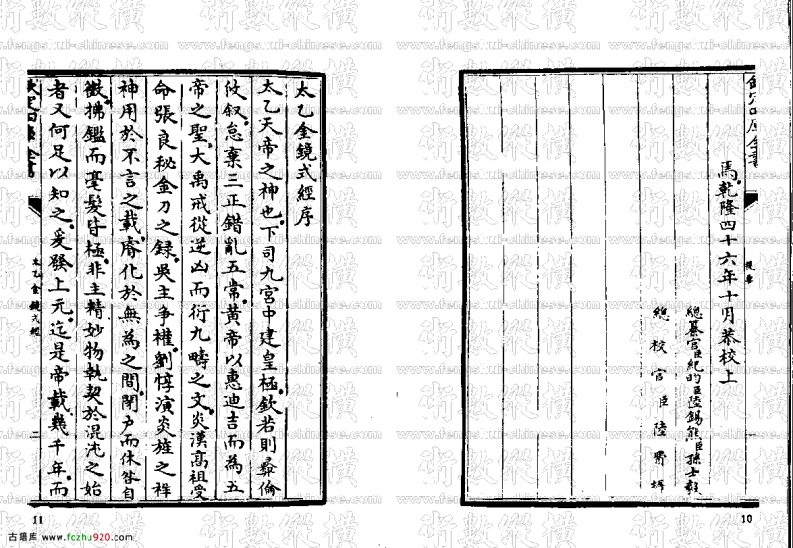 欽定四庫全書
提要
焉乾隆四十六年十月恭校上
總纂官臣紀昀臣陸錫熊臣孫士毅
總校官臣陸費墀
10
太乙金鏡式經序
太乙天帝之神也下司九宮中建皇極欽若則彞倫
攸叙怠棄三正錯亂五常黄帝以惠迪吉而為五
帝之聖大禹戒從逆凶而衍九疇之文炎漢高祖受
命張良秘金刀之録吳主争權劉惇演炎雄之祥
神用於不言之載齊化於無為之間閉户而休咎自
徴拂鑑而毫髮皆極非主精妙物孰契於混沌之始
者又何足以知之爰發上元迄是帝載幾千年而
欽定四庫全書
太乙金鏡式經
二
11
古籍库 www.fczhu920.com
術數縱横
www.fengshui-chinese.com